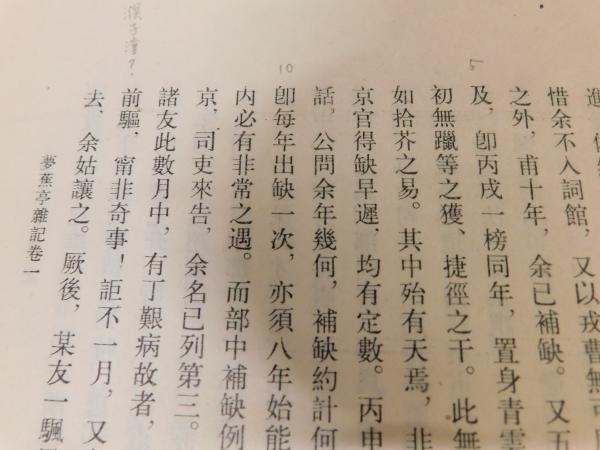 惜余不入詞館，又以戎曹無可
之外，甫十年，余已補缺。又五
及，卽丙戌一榜同年，置身青雲
初無躐等之獲、捷徑之干。此無
如拾芥之易。其中殆有天焉，非
京官得缺早遲，均有定數。丙申
話，公問余年幾何，補缺約計何
卽每年出缺一次，亦須八年始能
內必有非常之遇。而部中補缺例
京，司吏來告，余名已列第三。
諸友此數月中，有丁艱病故者，
前驅，甯非奇事！詎不一月，又
去，余姑讓之。厥後，某友一颿
夢蕉亭雜記卷一
5
10